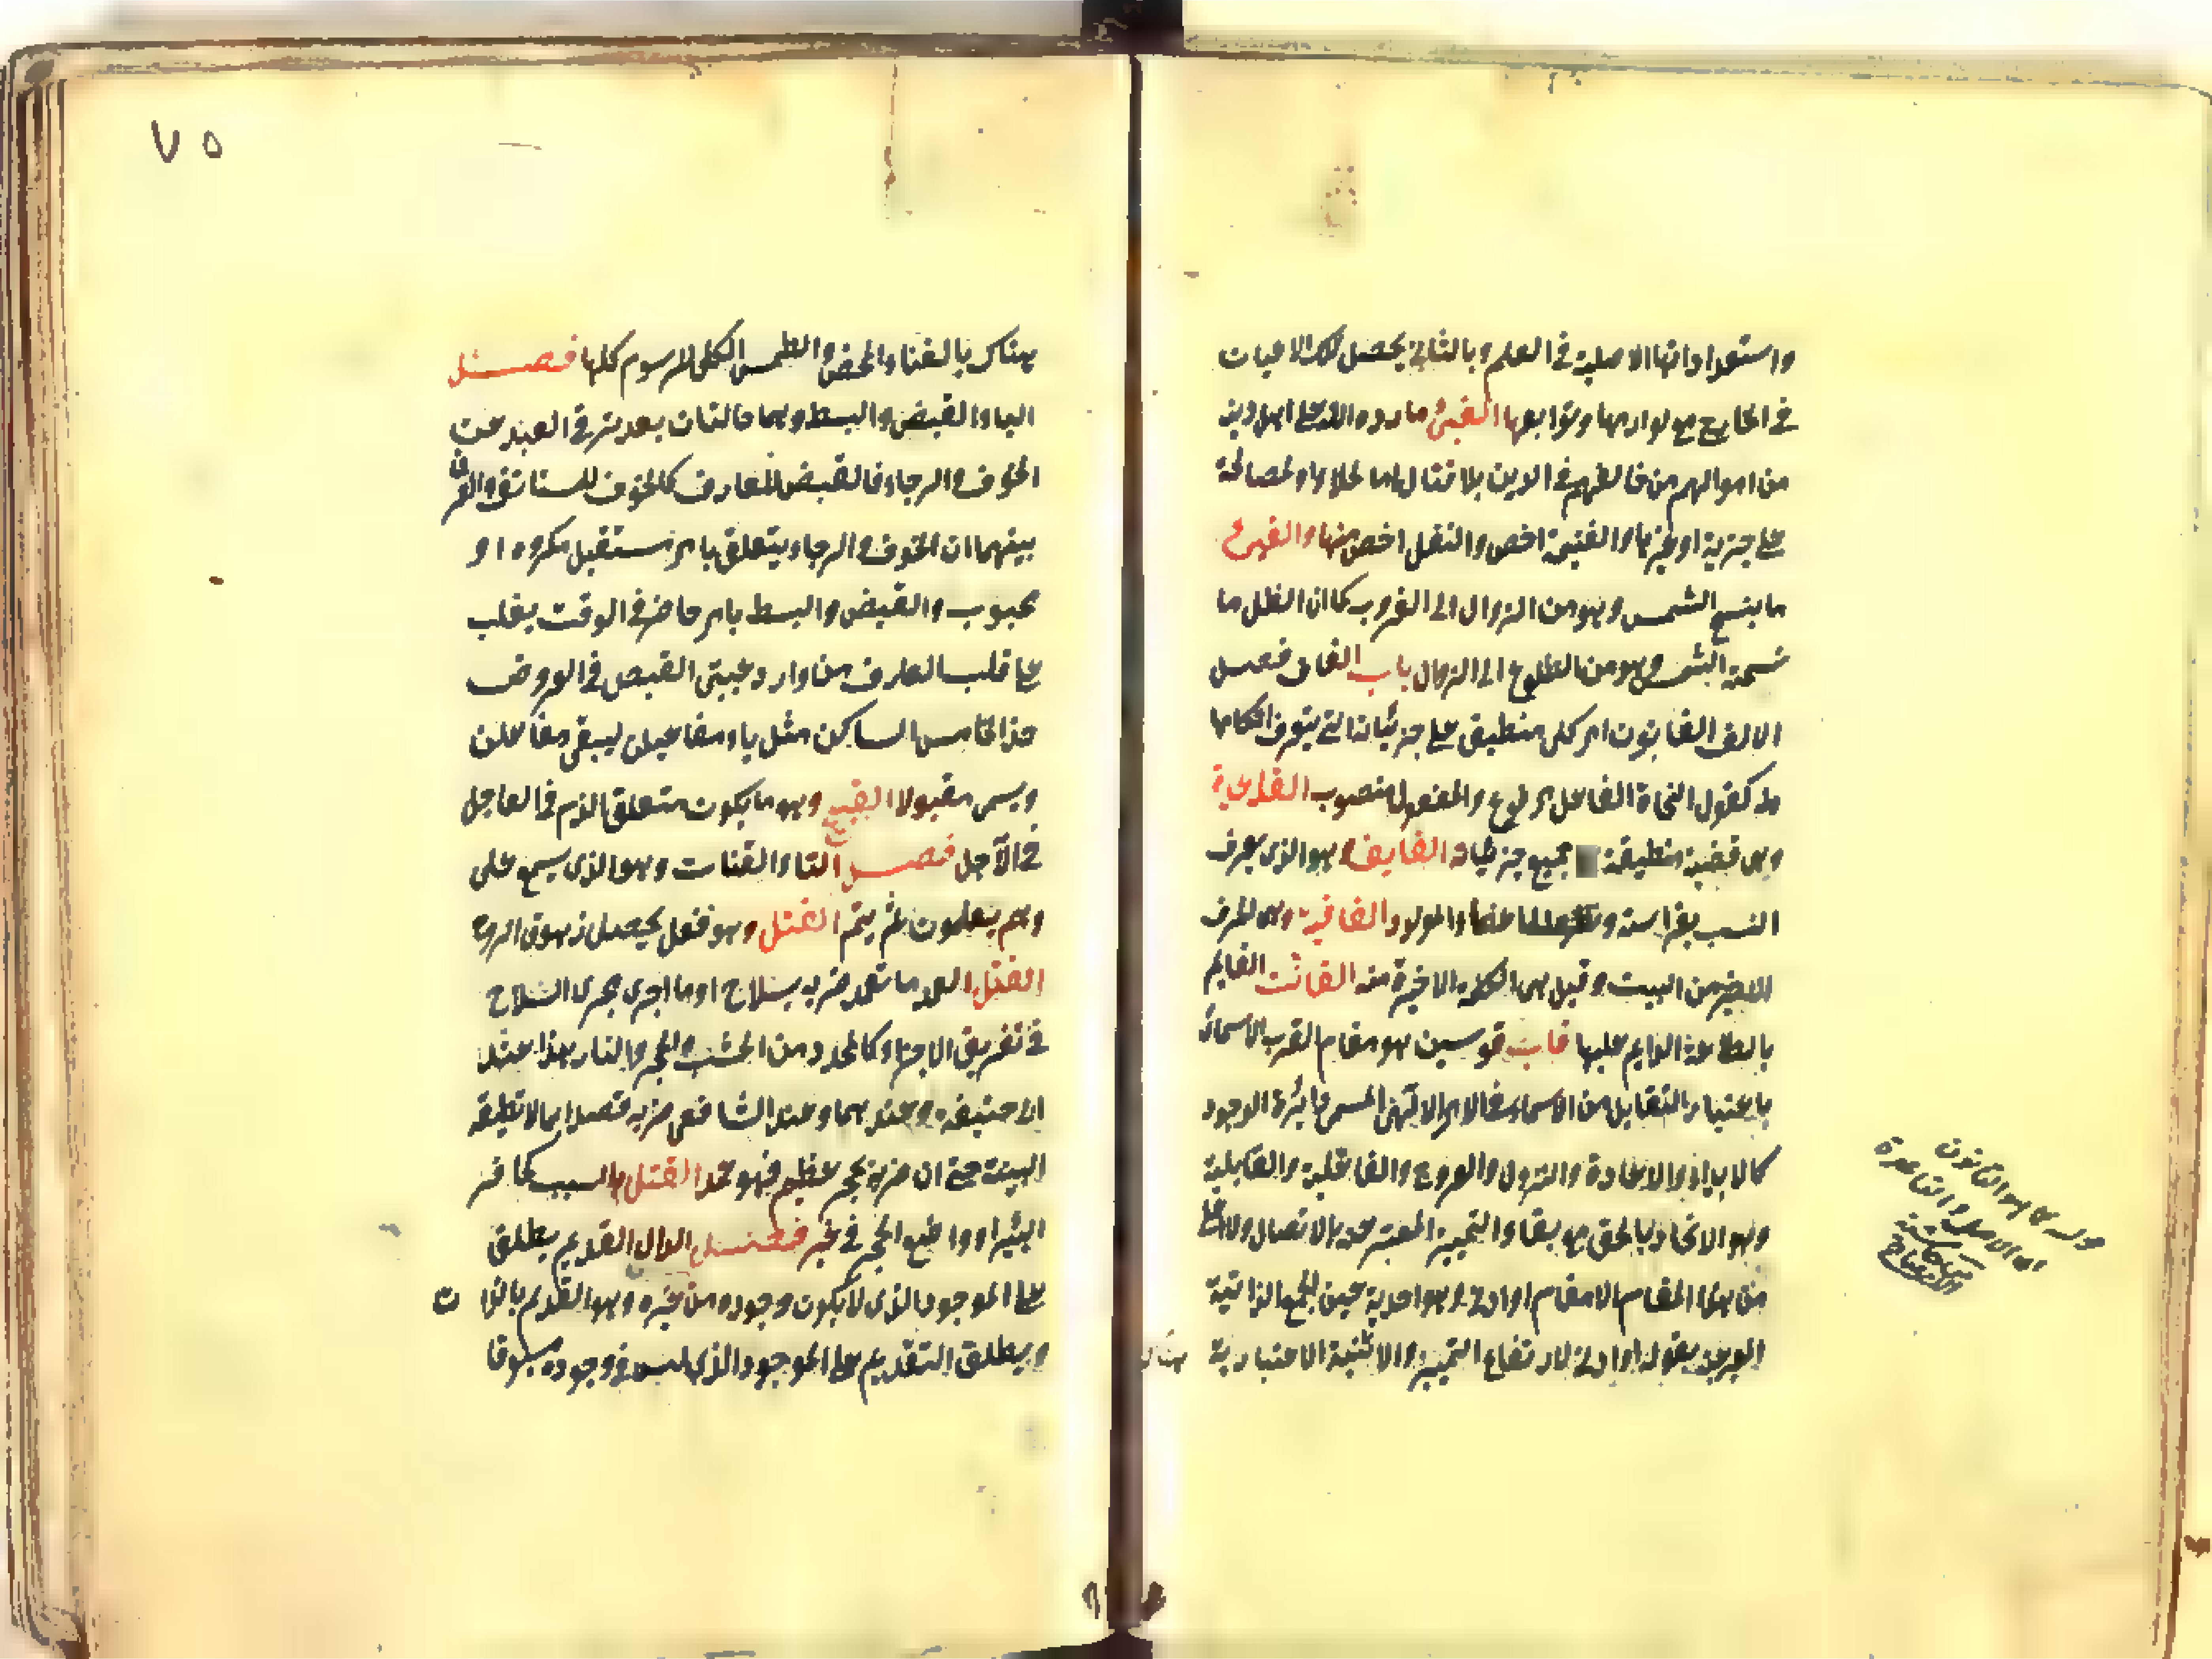 واستعداداتها الاصلية في العلم وبالثاني يحصل تلك الاعيان
في الخارج مع لوازمها وتوابعها الفيئ ما رده الله على اهل دينه
من اموال من خالفهم في الدين بلا قتال اما بالجلاء او بمصالحة
على جزية او غيرها والغنيمة اخص والنفل اخص منها والفيئ
ما ينسخ الشمس وهو من الزوال الى الغروب كما ان الظل ما
نسخته الشمس وهو من الطلوع الى الزوال باب القاف فصل
الالف القانون امر كلى منطبق على جزئياته التي يتعرف احكامها
منه كقول النحاة الفاعل مرفوع والمفعول منصوب القاعدة
وهي قضية منطبقة جميع جزئياته القايف وهو الذي يعرف
النسب بفراسته ونظره الى اعضاء المولود القافية وهي الحرف
الاخير من البيت وقيل هي الكلمة الاخيرة منه القانت القايم
بالطاعة الدايم عليها قاب قوسين هو مقام القرب الاسمائى
باعتبار التقابل من الاسماء في الامر الالهى المسمى دائرة الوجود
كالابداء والاعادة والنزول والعروج والفاعلية والقابلية
وهو الاتحاد بالحق مع بقاء التمييز المعبر عنه بالاتصال ولا اعلى
من هذا المقام الا مقام او ادنى وهو احدية عين الجمع الذاتية
المعبر عنه بقوله او ادنى لارتفاع التمييز والاثنينية الاعتبارية
هناك
القانون
الاصل والقاعدة
٧٥
هناك بالفناء المحض والطمس الكلى للرسوم كلها فصل
الباء القبض والبسط وهما حالتان بعد ترقى العبد عن
الخوف والرجاء فالقبض للعارف كالخوف للمستأنف والفرق
بينهما ان الخوف والرجاء يتعلق بامر مستقبل مكروه او
محبوب والقبض والبسط بامر حاضر في الوقت يغلب
على قلب العارف من وارد غيبى القبض في العروض
حذف الخامس الساكن مثل ياء مفاعيلن ليبقى مفاعلن
ويسمى مقبوضا القبيح وهو ما يكون متعلق الذم في العاجل
في الآجل فصل التاء القتات وهو الذي يسمع على
وهم لا يعلمون ثم ينم القتل وهو فعل يحصل زهوق الروح
القتل العمد ما تعمد ضربه بسلاح او ما اجرى مجرى السلاح
في تفريق الاجزاء كالمحدد من الخشب والحجر والنار هذا عند
ابي حنيفه وعندهما وعند الشافعى ضربه قصدا بما لا تطيقه
البينة حتى ان ضربه بحجر عظيم فهو عمد القتل بالسبب كحافر
البئر او واضع الحجر في غير فصل الدال القديم يطلق
على الموجود الذي لا يكون وجوده من غيره وهو القديم بالذات
ويطلق القديم على الموجود الذي ليس في وجوده مسبوقا